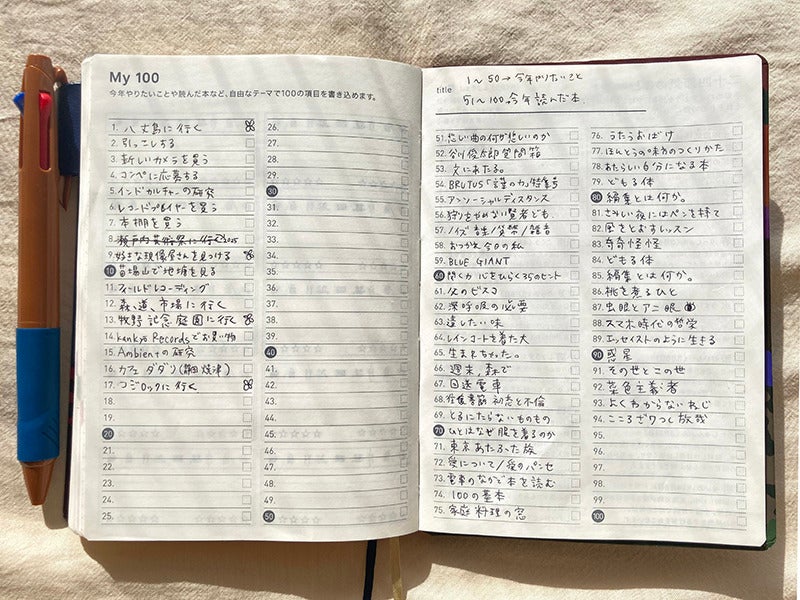 My 100
今年やりたいことや読んだ本など、自由なテーマで100の項目を書き込めます。
1. 八丈島に行く
2. 引っこしする
3. 新しいカメラを買う
4. コンペに応募する
5. インドカルチャーの研究
6. レコードプレイヤーを買う
7. 本棚を買う
8. 瀬戸内芸術祭に行く 2025
9. 好きな現像屋さんを見つける
10 苗場山で地塘を見る
11. フィールドレコーディング
12. 森、道、市場に行く
13. 牧野記念庭園に行く
14. kankyo Recordsでお買い物
15. Ambientの研究
16. カフェ ダダリ(静岡 焼津)
17. コジロックに行く
18.
19.
20
21.
22.
23.
24.
25.
26.
27.
28.
29.
30
31.
32.
33.
34.
35.
36.
37.
38.
39.
40
41.
42.
43.
44.
45.
46.
47.
48.
49.
50
1〜50→今年やりたいこと
title
51〜100 今年読んだ本
51. 悲しい曲の何が悲しいのか
52. 谷川俊太郎質問箱
53. 文にあたる。
54. BRUTUS「謹の力」特集号
55. アンソーシャルディスタンス
56. 狩りをやめない賢者ども
57. ノイズ 音楽/貨幣/雑音
58. おっかなの今日の私
59. BLUE GIANT
60 聞く力 心をひらく35のヒント
61. 父のビスコ
62. 深呼吸の必要
63. 逢したい味
64. レインコートを着た犬
65. 生まれちゃった。
66. 週末、森で
67. 回送電車
68. 往復書簡 初恋と不倫
69. とるにたらないものもの
70 ひとはなぜ服を着るのか
71. 東京あたふた族
72. 愛について/愛のパンセ
73. 電車のなかで本を読む
74. 100の基本
75. 家庭料理の窓
76. うたうおばけ
77. ほんとうの味方のつくりかた
78. あたらしい自分になる本
79. どもる体
80 編集とは何か。
81. さみしい夜にはペンを持て
82. 風をとおすレッスン
83. 奇奇怪怪
84. どもる体
85. 編集とは何か。
86. 桃を煮るひと
87. 虫眼とアニ眼
88. スマホ時代の哲学
89. エッセイストのように生きる
90 惑星
91. その世とこの世
92. 菫色主義者
93. よくわからないねじ
94. こころざわつく放哉
95.
96.
97.
98.
99.
100